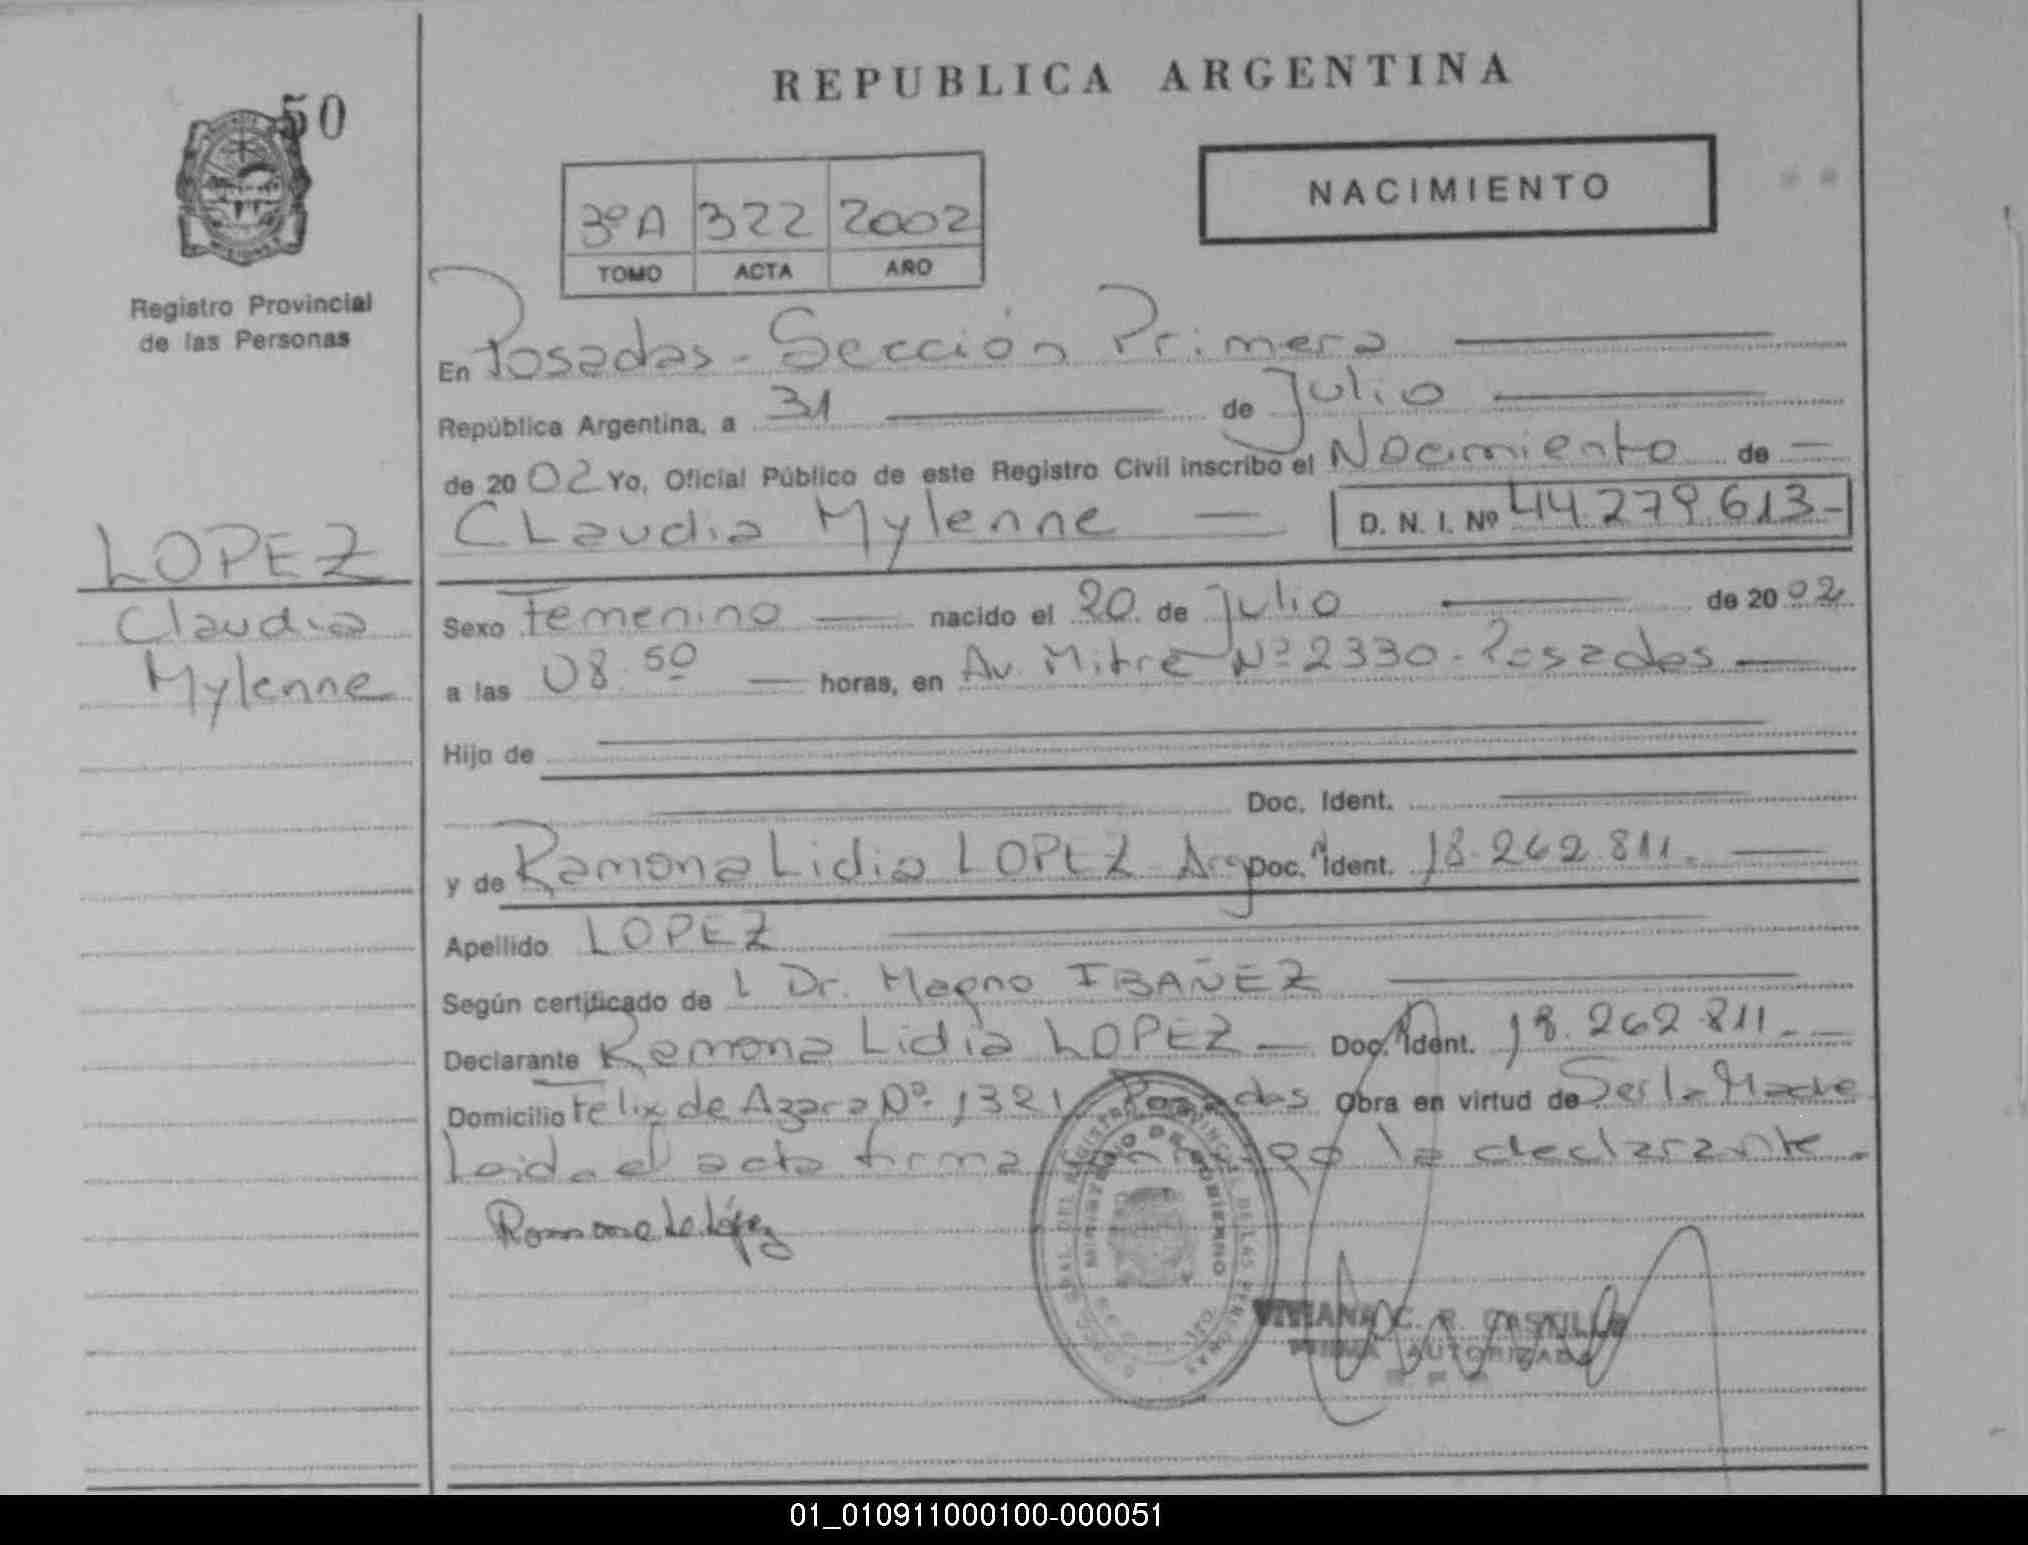 50
REPUBLICA ARGENTINA
NACIMIENTO
3ºA 322 2002
TOMO ACTA AÑO
Registro Provincial
de las Personas
En Posadas - Sección Primera
República Argentina, a 31 de Julio
de 2002 Yo, Oficial Público de este Registro Civil inscribo el Nacimiento de
Claudia Mylenne D. N. I. Nº 44.279.613-
LOPEZ
Claudia
Mylenne
Sexo Femenino nacido el 20 de Julio de 2002
a las 08.50 horas, en Av. Mitre Nº 2330 - Posadas
Hijo de
Doc. Ident.
y de Ramona Lidia LOPEZ - Arg Doc. Ident. 18.262.811.
Apellido LOPEZ
Según certificado de l Dr. Magno IBAÑEZ
Declarante Ramona Lidia LOPEZ Doc. Ident. 18.262.811.
Domicilio Felix de Azara Nº 1321 Posadas Obra en virtud de Ser la Madre
Leida el acta firma conmigo la declarante.
Ramona L. López
MINISTERIO DE GOBIERNO
VIVIANA C. R. CASTILLO
FIRMA AUTORIZADA
01_010911000100-000051